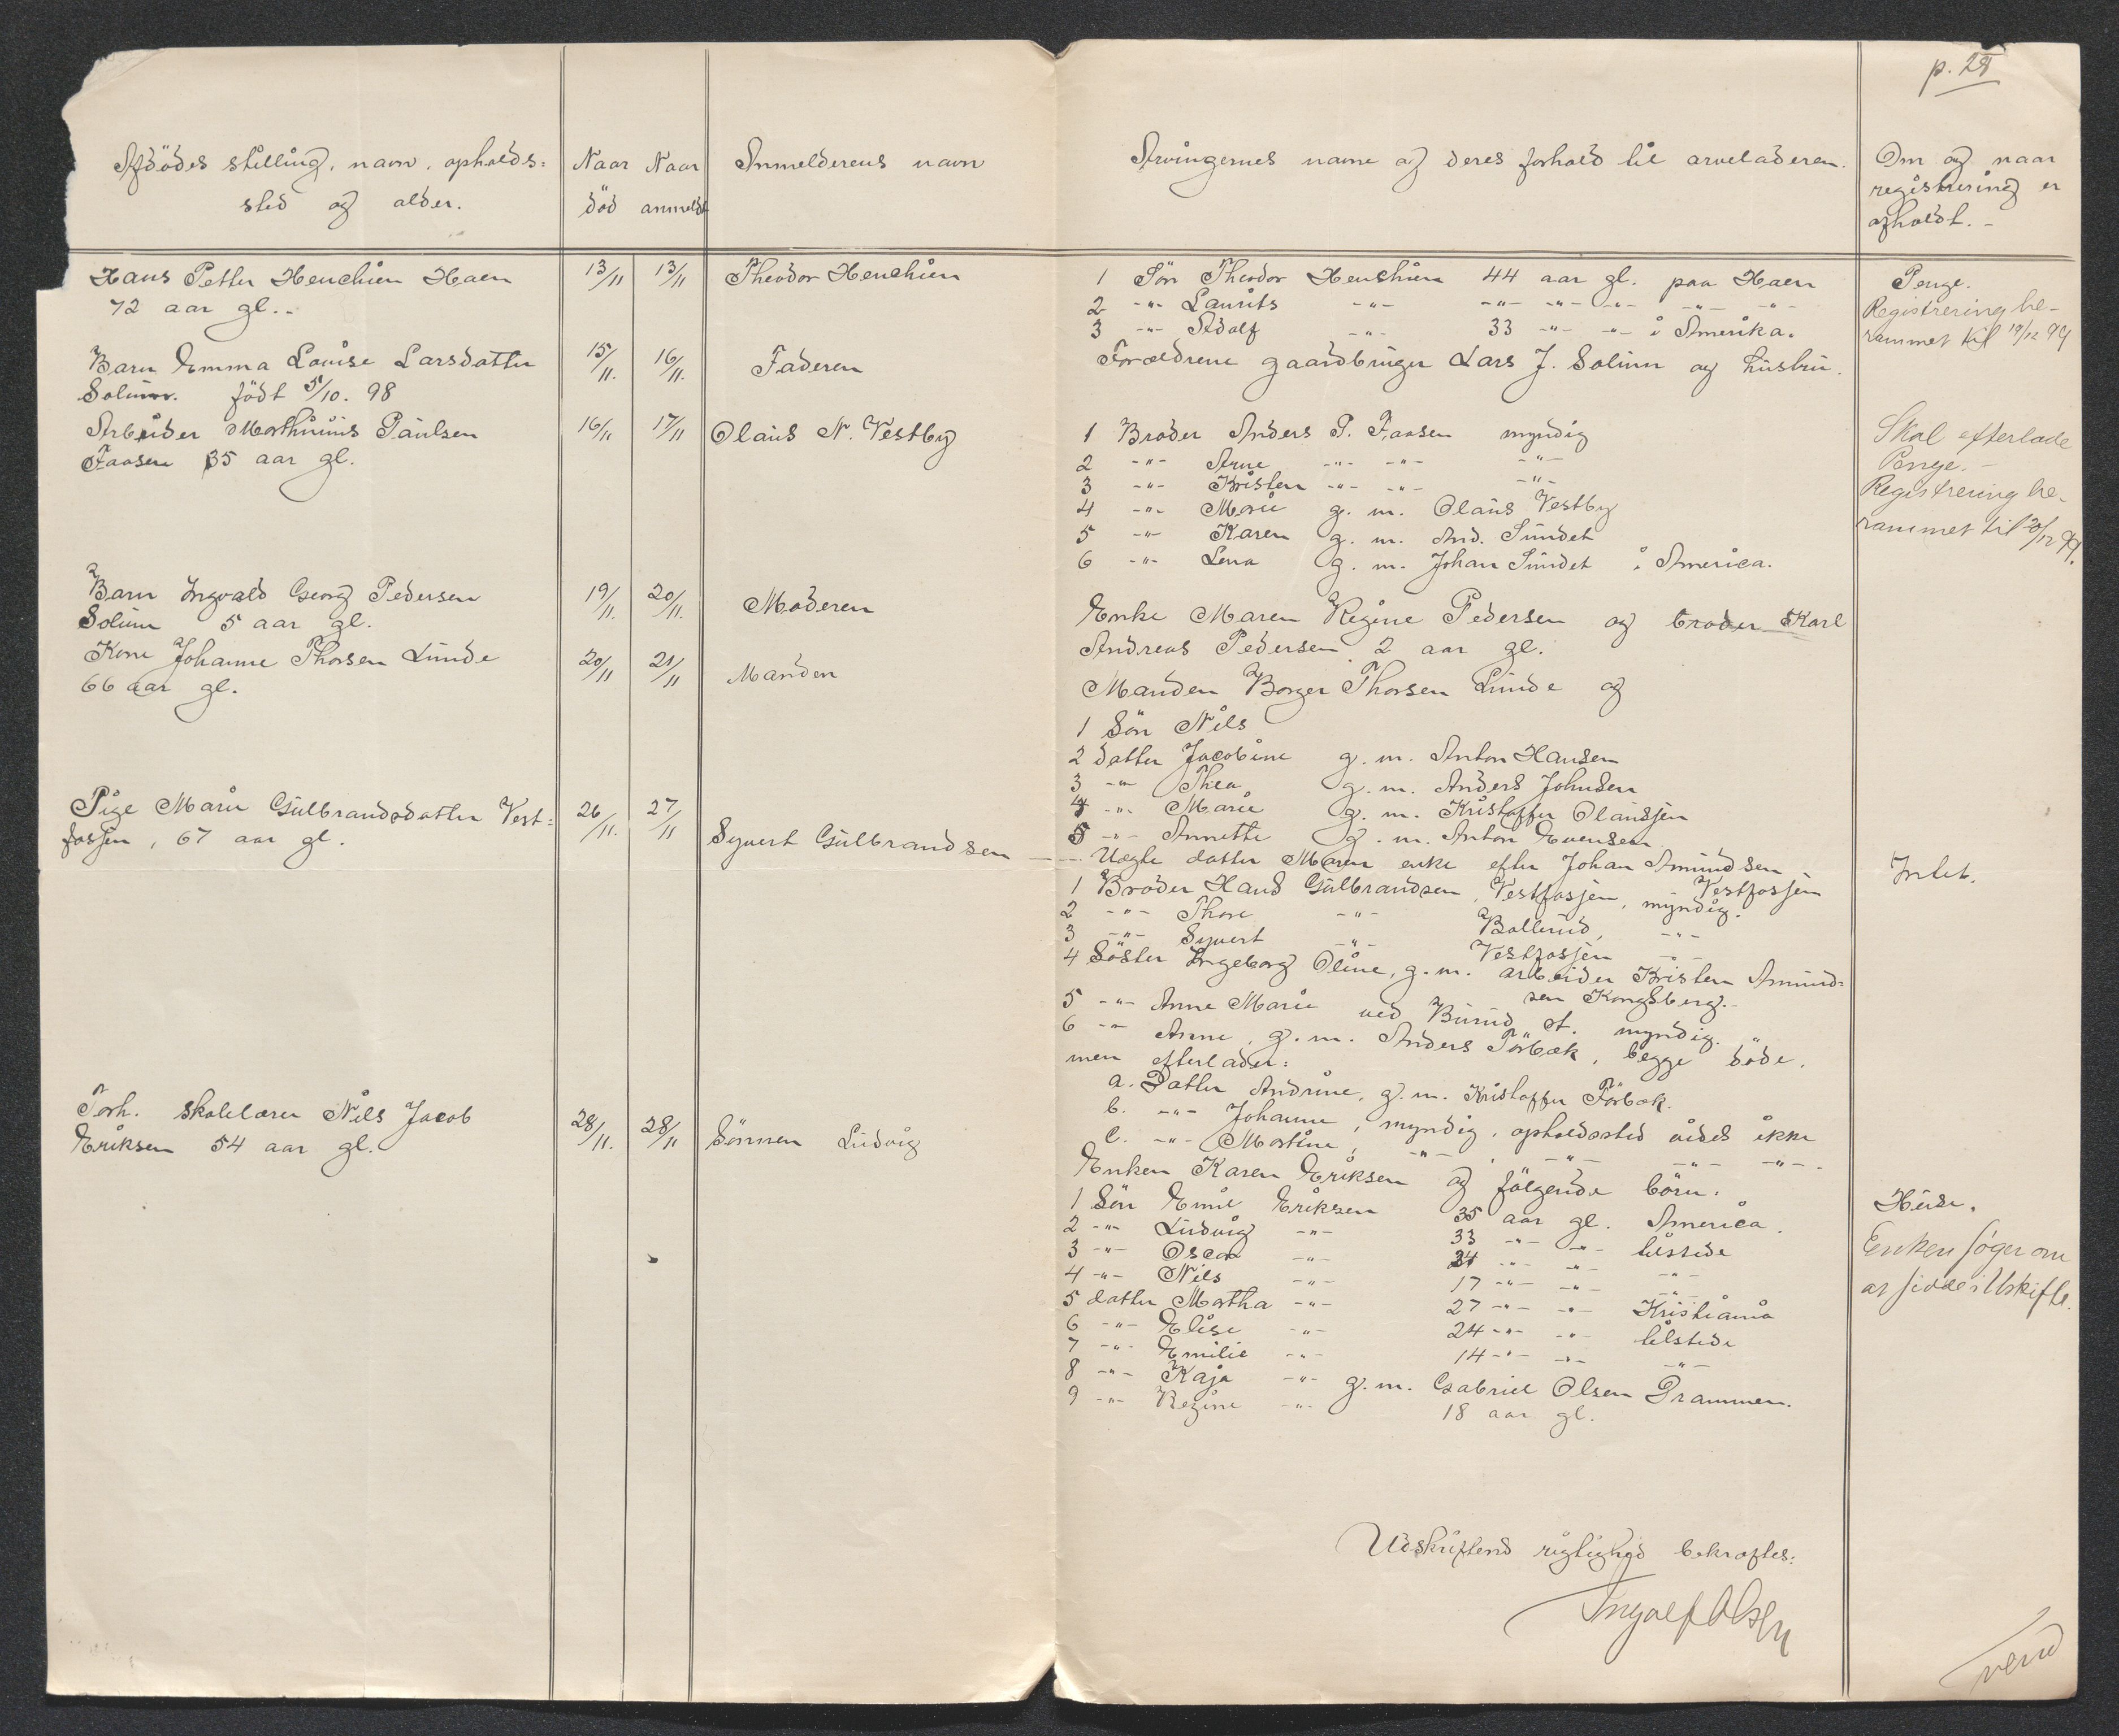 p. 28
Afdödes stilling, navn, opholds=
sted og alder.
Naar
död
Naar
anmeldt
Anmelderens navn
Arvingernes navne og deres forhold til arveladeren.
Om og naar
registrering er
afholdt. -
Hans Petter Henchien Haen
72 aar gl. -
13/11
13/11
Theodor Henchien
1 Sön Theodor Henchien 44 aar gl. paa Haen
2 -"- Laurits -"- -"- -"- -"- -"- -"-
3 -"- Adolf -"- 33 -"- -"- i Amerika.
Penge.
Registrering be-
rammet til 19/12 99
Barn Emma Louise Larsdatter
Solum. födt 5/10. 98
15/11.
16/11.
Faderen
Forældrene gaardbruger Lars J. Solum og hustru.
Arbeider Marthinius Paulsen
Faasen 35 aar gl.
16/11
17/11
Olaus N. Vestby
1 Broder Anders P. Faasen myndig
2 -"- Arne -"- -"- -"-
3 -"- Kristen -"- -"- -"-
4 -"- Marie g. m. Olaus Vestby
5 -"- Karen g. m. And. Sundet
6 -"- Lena g. m. Johan Sundet i America.
Skal efterlade
Penge. -
Registrering be-
rammet til 20/12 99.
Barn Ingvald Georg Pedersen
Solum 5 aar gl.
19/11.
20/11.
Moderen
Enke Maren Regine Pedersen og broder Karl
Andreas Pedersen 2 aar gl.
Kone Johanne Thorsen Lunde
66 aar gl.
20/11
21/11
Manden
Manden Borger Thorsen Lunde og
1 Sön Nils
2 datter Jacobine g. m. Anton Hansen
3 -"- Thea g. m. Anders Johnsen
4 -"- Marie g. m. Kristoffer Olausen
5 -"- Annette g. m. Anton Evensen
-"- Uegte datter Maren enke efter Johan Amundsen
Vestfossen
Pige Marie Gulbrandsdatter Vest=
fossen, 67 aar gl.
26/11.
27/11
Syvert Gulbrandsen
1 Broder Hans Gulbrandsen, Vestfossen, myndig.
2 -"- Thore -"- Bollerud, -"-
3 -"- Syvert -"- Vestfossen -"-
4 Söster Ingeborg Oline, g. m. arbeider Kristen Amund=
sen Kongsberg. -
5 -"- Anne Marie ved Burud st. myndig.
6 -"- Anne, g. m. Anders Förbæk, begge döde,
men efterlader:
a. Datter Andrine, g. m. Kristoffer Förbæk.
b. -"- Johanne, myndig, opholdssted vides ikke
c. -"- Martine, -"- , -"- -"- -"- .
Intet.
Forh. skolelærer Nils Jacob
Eriksen 54 aar gl.
28/11.
28/11
Sönnen Ludvig
Enken Karen Eriksen og fölgende börn:
1 Sön Emil Eriksen 35 aar gl. America.
2 -"- Ludvig -"- 33 -"- -"- tilstede
3 -"- Oscar -"- 21 -"- -"- -"-
4 -"- Nils -"- 17 -"- -"- -"-
5 datter Martha -"- 27 -"- -"- Kristiania
6 -"- Elise -"- 24 -"- -"- tilstede
7 -"- Emilie -"- 14 -"- -"- -"-
8 -"- Kaja -"- g. m. Gabriel Olsen Drammen.
9 -"- Regine -"- 18 aar gl.
Enken söger om
at sidde i Uskifte.
Udskriftens rigtighed bekræftes:
Ingolf Olsen